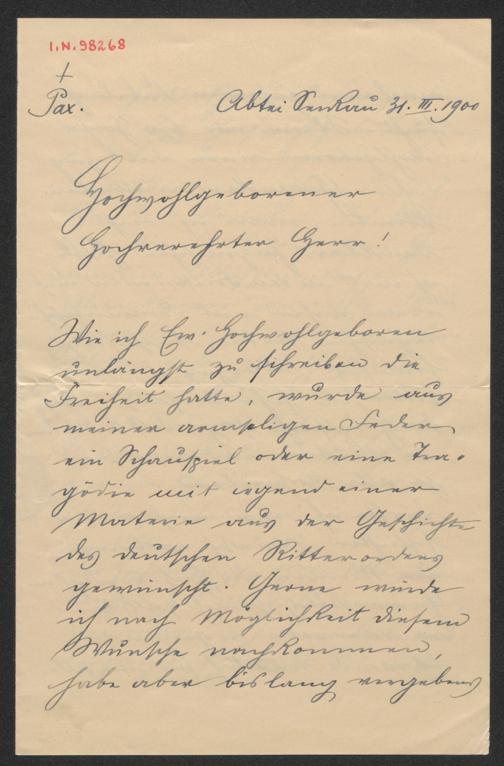 I.N. 98268
+
Pax.
Abtei Seckau 31. III. 1900
Hochwohlgeborener
Hochverehrter Herr!
Wie ich Ew. Hochwohlgeboren
unlängst zu schreiben die
Freiheit hatte, wurde aus
meiner armseligen Feder
ein Schauspiel oder eine Tra-
gödie mit irgend einer
Materie aus der Geschichte
des deutschen Ritterordens
gewünscht. Gerne würde
ich nach Möglichkeit diesem
Wunsche nachkommen,
habe aber bislang vergebens